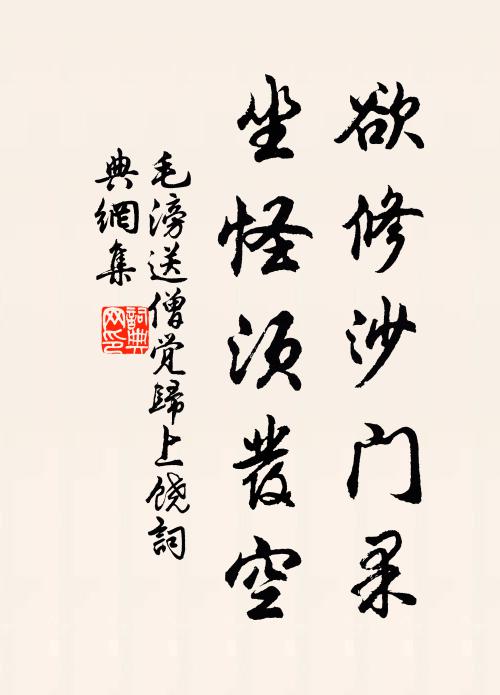 欲修沙门果
坐怪须發空
毛滂送僧觉歸上饶詞
典網集
詞典
网印